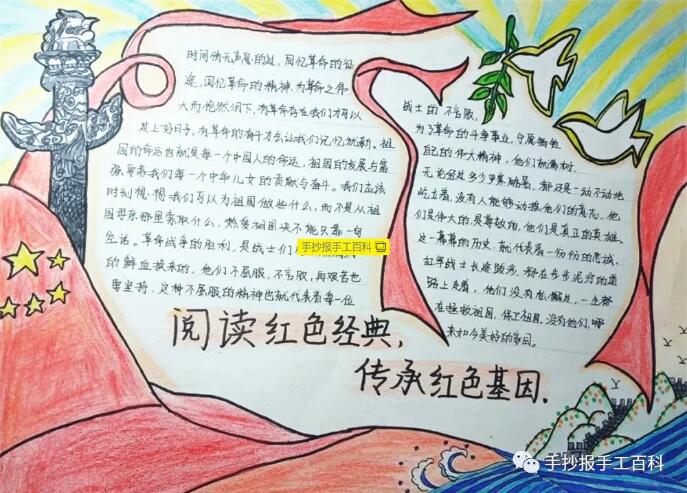 时间悄无声息的过,回忆革命的征
途,回忆革命的精神,为革命之伟
大而怆然泪下,有革命存在我们才可以
过上好日子,有革命的奋斗才会让我们记忆犹新。祖
国的命运也就是每一个中国人的命运,祖国的发展与富
强,要靠我们每一个中华儿女的贡献与奋斗。我们应该
时刻想想我们可以为祖国做些什么,而不是从祖
国母亲那里索取什么,热爱祖国决不能只靠一句
空话。革命战争的胜利,是战士们
的鲜血换来的,他们不屈服,不言败,再艰苦也
要坚持,这种不屈服的精神也就代表着每一位
战士的不言败,
为了革命的斗争事业,宁愿牺牲
自己的伟大精神,他们就像树,
无论经过多少严寒酷暑,都还是一动不动地
屹立着,没有人能够动摇他们的意志,他
们是伟大的,是尊敬的,他们是真正的英雄。
这一幕幕的历史,就代表着一份份的忠诚,
红军战士长途跋涉,都在步步泥泞的道
路上走着,他们没有想懈怠,一生都
在拯救祖国,保卫祖国,没有他们,哪
来如今美好的家园。
手抄报手工百科
阅读红色经典,
传承红色基因.
手抄报手工百科